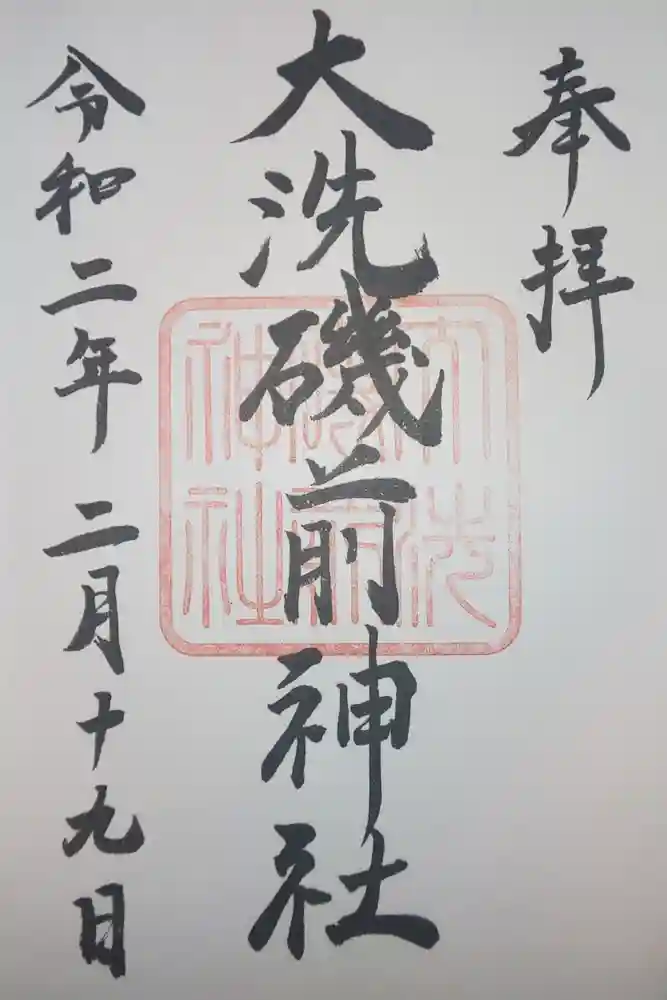 奉拝
大洗磯前神社
令和二年 二月十九日
大洗
磯前
神社